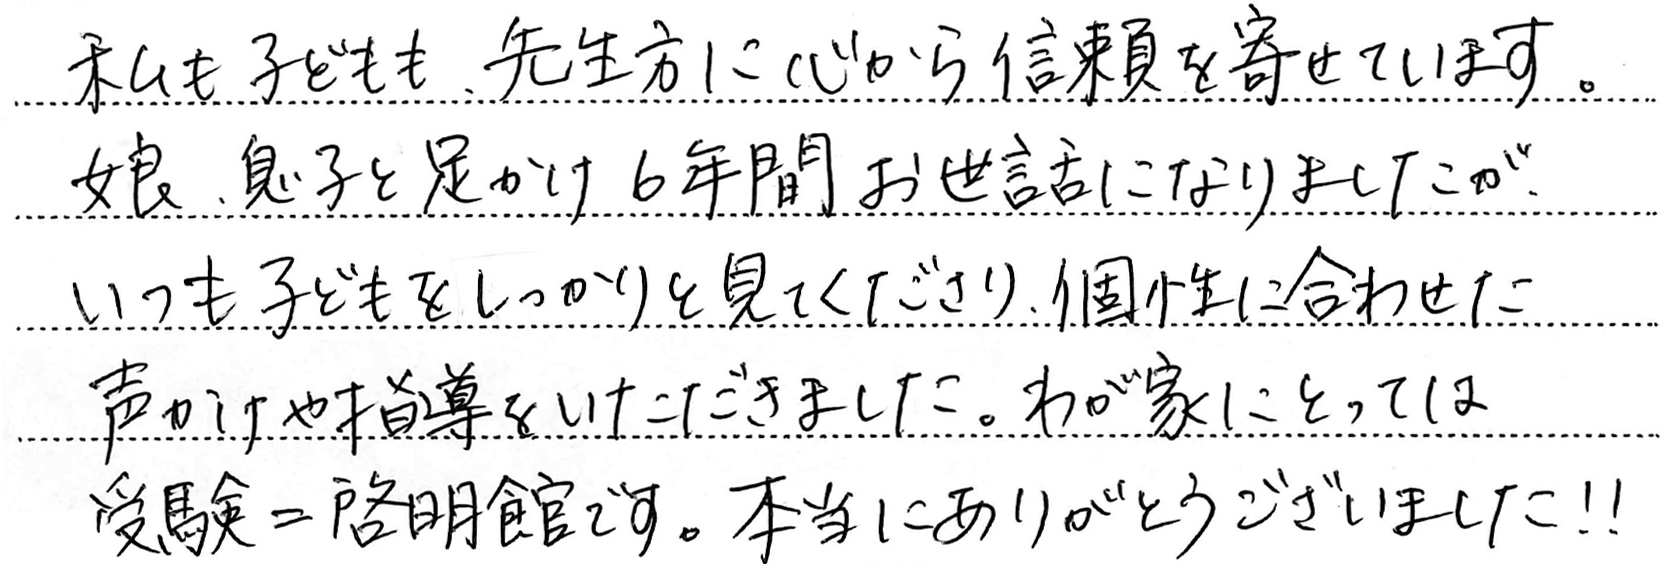 私も子どもも、先生方に心から信頼を寄せています。
娘、息子と足かけ6年間お世話になりましたが、
いつも子どもをしっかりと見てくださり、個性に合わせた
声かけや指導をいただきました。わが家にとっては
受験＝啓明館です。本当にありがとうございました!!